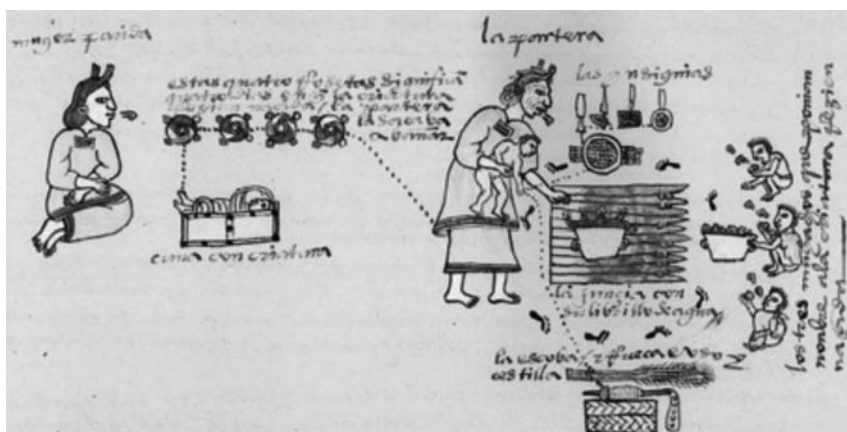 muger parida
la partera
estas quatro rosetas significã
quatro dias la criatura
la partera
la sacaba
a bañar
las insignias
cuna con criatura
la juncia con
su librillo de agua
la escoba / y rueca e uso y
cestilla
los tres
nombre a la criatura rezien
nacida